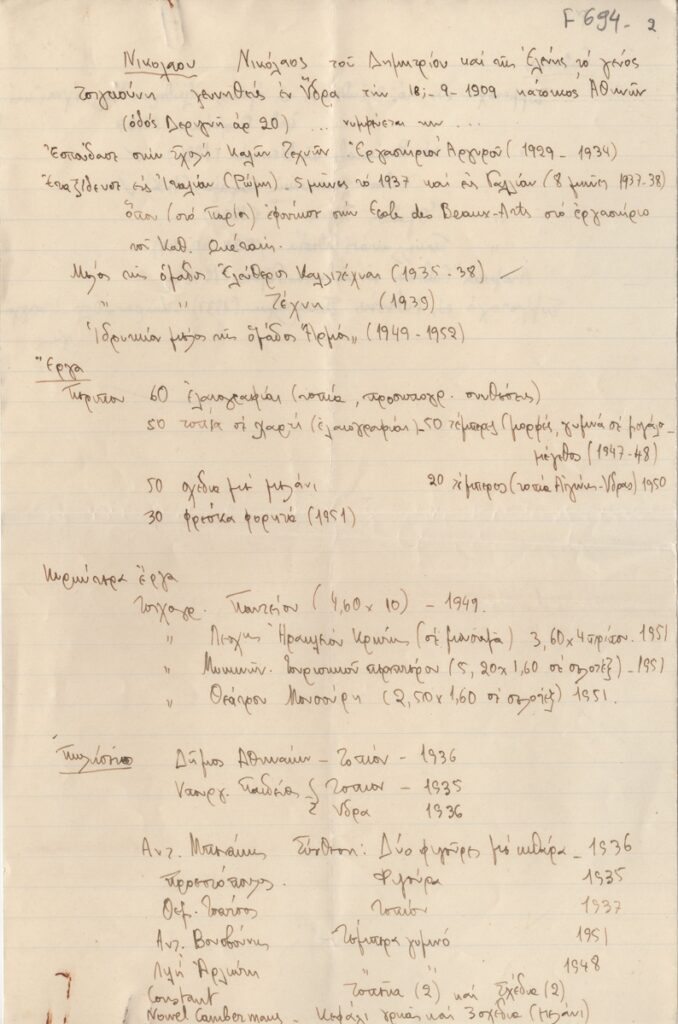 F 694- 2
Νικολάου Νικόλαος τοῦ Δημητρίου καὶ τῆς Ἑλένης τὸ γένος
γεννηθείς ἐν Ὕδρα τὴν 18-9-1909 κάτοικος Ἀθηνῶν
(ὁδός Δεριγνῆ ἀρ 20) ...
Ἐσπούδασε στὴν Σχολή Καλῶν Τεχνῶν Ἐργαστήριον Ἀργυροῦ (1929-1934)
Ἐταξίδευσε εἰς Ἰταλίαν (Ρώμη) 5 μῆνες τὸ 1937 καὶ εἰς Γαλλίαν (8 μῆνες 1937-38)
ὅπου (στὸ Παρίσι) ἐφοίτησε στὴν Ecole des Beaux-Arts στὸ ἐργαστήριο
τοῦ Καθ.
Μέλος τῆς ὁμάδος Ἐλεύθεροι Καλλιτέχναι (1935-38)
" " Τέχνη (1939)
Ἱδρυτικόν μέλος τῆς ὁμάδος "Ἀρμός" (1949-1952)
Ἔργα
Περίπου 60 ἐλαιογραφίαι (τοπία, προσωπογρ. συνθέσεις)
50 τοπία σέ χαρτί (ἐλαιογραφίαι) - 50 τέμπερες (μορφές, γυμνά σέ μεγάλο
μέγεθος (1947-48)
50 σχέδια μέ μελάνι 20 τέμπερες (τοπία Αἰγίνης-Υδρας) 1950
30 φρέσκα φορητά (1951)
Κυριώτερα ἔργα
Τοιχογρ. Παντείου (4,60 x 10) - 1949.
" Λέσχης Ἡρακλείου Κρήτης (σέ μουσαμά) 3,60 x 4 περίπου. 1951
" Μυκηνῶν. Τουριστικοῦ περιπτέρου (5,20 x 1,60 σέ σελοτέξ) - 1951
" Θεάτρου Μουσούρη (2,50 x 1,60 σέ σελοτέξ) 1951.
Δῆμος Ἀθηναίων - Τοπίον - 1936
Υπουργ. Παιδείας { Τοπίον - 1935
Υδρα 1936
Ἀντ. Μπενάκης Σύνθεση: Δύο φιγοῦρες μέ κιθάρα - 1936
Προεστόπουλος. Φιγούρα 1935
Θεμ. Τσάτσος Τοπίον 1937
Ἀντ. Βουσβούνης Τέμπερα γυμνό 1951
Λιλή Ἀρλιώτη " " 1948
Constant Τοπεῖα (2) καὶ Σχέδια (2)
Κεφάλι γριᾶς καὶ 3 σχέδια (μελάνι)